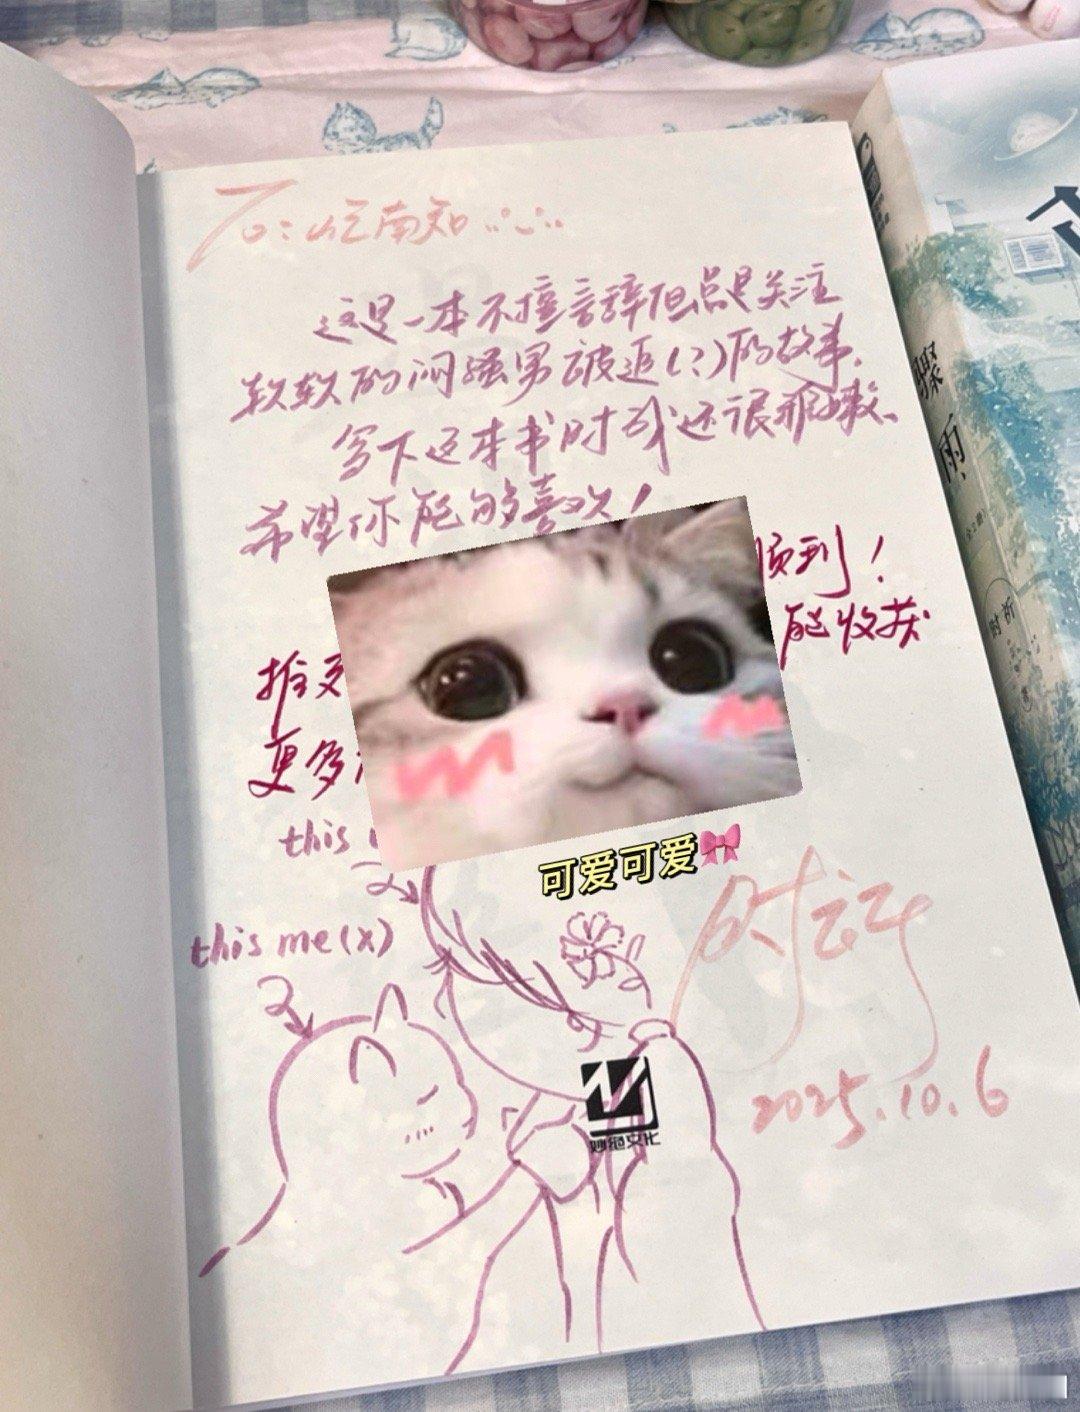 To:屹南知∵∴
这是一本不擅言辞但总是关注
软软的闷骚男被追(?)的故事.
写下这本书时我还很稚嫩、
希望你能够喜欢!
顺利!
能收获
更多
this
this me(x)
可爱可爱
2025.10.6
妙绝文化
骤雨
时祈